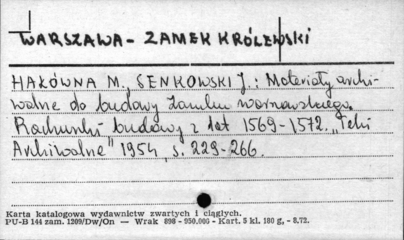 WARSZAWA - ZAMEK KRÓLEWSKI
HALÓWNA M., SENKOWSKI J.: Materiały archi-
walne do budowy Zamku warszawskiego.
Rachunki budowy z lat 1569-1572. „Teki
Archiwalne" 1954, s. 229-266.
Karta katalogowa wydawnictw zwartych i ciągłych.
PU-B 144 zam. 1209/Dw/On — Wrak 898 - 950.000 - Kart. 5 kl. 180 g. - 8.72.